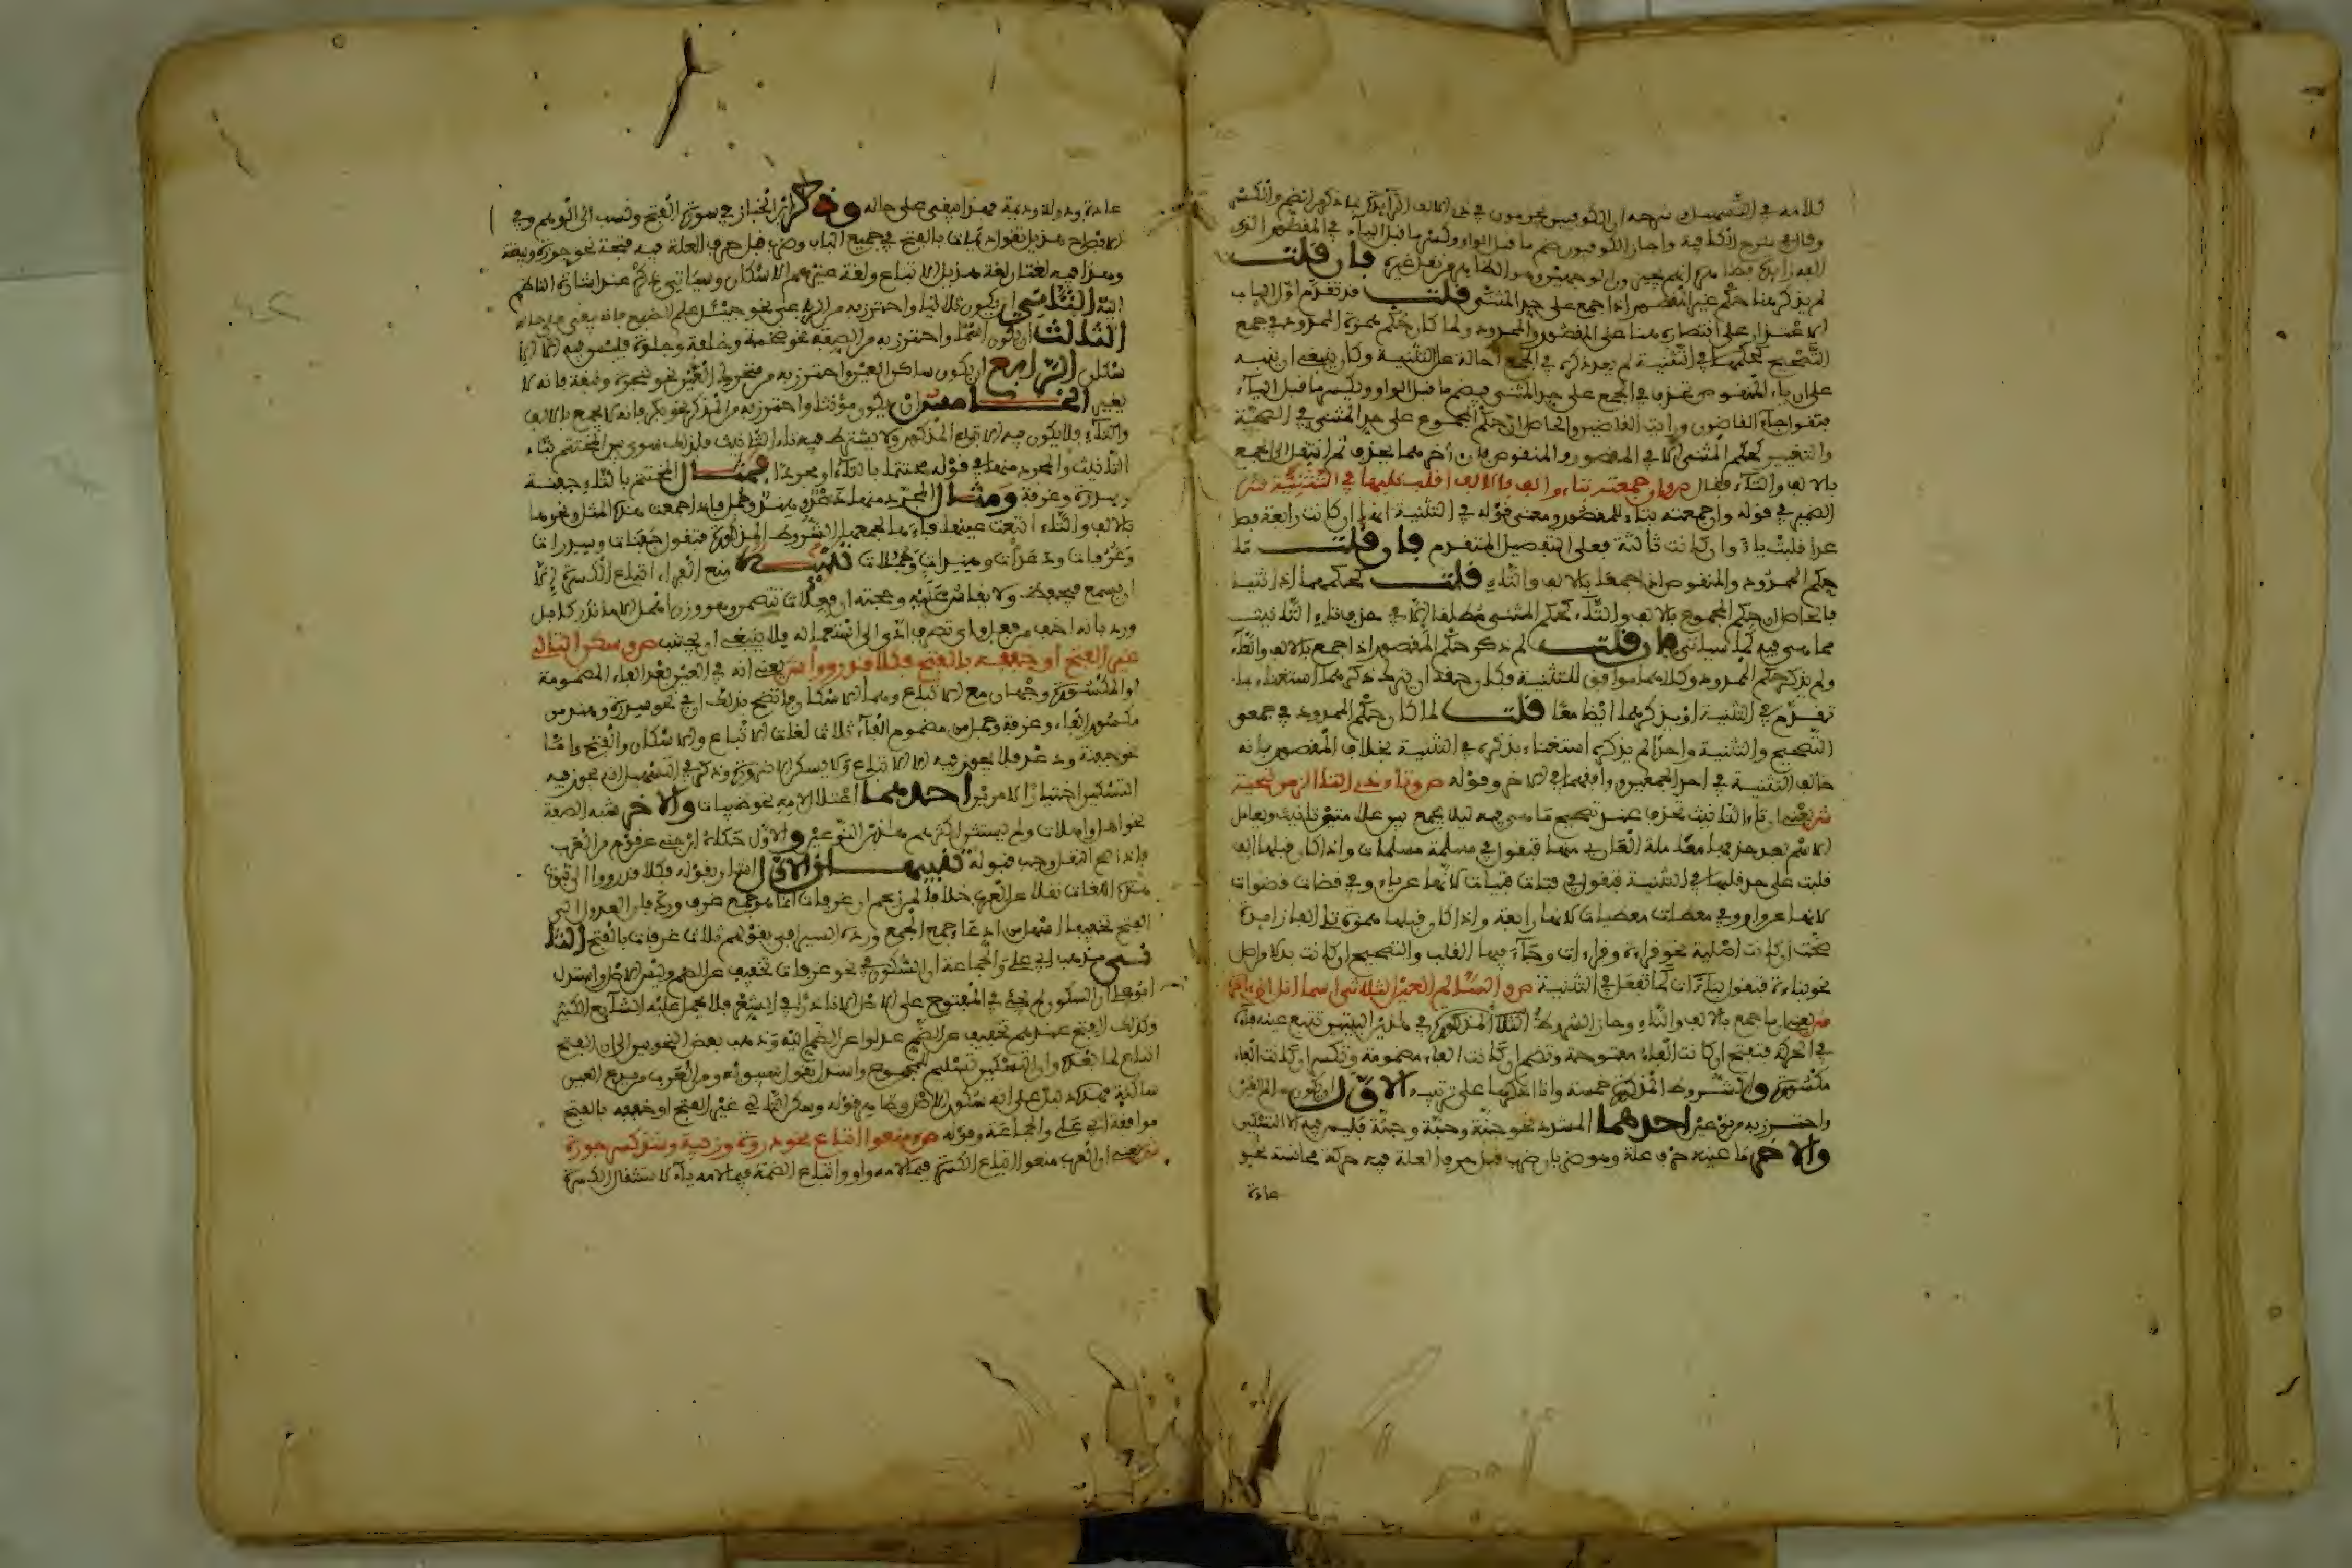 كلامه في التسهيل وشرحه ان الكوفيين يجرون في ذي الالف الزايدة ما ذكر الضم والكسر
وقال في شرح الكافية واجاز الكوفيون ضم ما قبل الواو وكسر ما قبل الياء في المقصور الذي
الفه زايدة فإن قلت
لم يذكر هنا حكم غير المقصور اذا جمع على حد المثنى قلت قد تقدم اول الباب
على المقصور والممدود ولما كان حكم همزة الممدود في جمع
التصحيح كحكمها في التثنية لم يعد ذكره في الجمع احالة على التثنية وكان ينبغي ان ينبه
على ان ياء المنقوص تحذف في الجمع على حد المثنى فيضم ما قبل الواو ويكسر ما قبل الياء
فتقول جاء القاضون ورايت القاضين والحاصل ان حكم المجموع على حد المثنى في الصحة
والتغيير كحكم المثنى الا في المقصور والمنقوص فان آخرهما يحذف ثم انتقل الى الجمع
بالالف والتاء فقال ص وان جمعته بتاء والف فالالف اقلب قلبها في التثنية ش
الضمير في قوله وان جمعته بتاء للمقصور ومعنى قوله في التثنية انها ان كانت رابعة فصا
عدا قلبت ياء وان كانت ثالثة فعلى التفصيل المتقدم فإن قلت ما
حكم الممدود والمنقوص اذا جمعا بالالف والتاء قلت كحكمهما اذا ثنيا
فالحاصل ان حكم المجموع بالالف والتاء كحكم المثنى مطلقا الا في حذف تاء التانيث
مما هي فيه كما سياتي فإن قلت لم ذكر حكم المقصور اذا جمع بالالف والتاء
ولم يذكر حكم الممدود وكلاهما موافق للتثنية فكان حقه ان يترك ذكرهما استغناء بما
تقدم في التثنية او يذكرهما ايضا معا قلت لما كان حكم الممدود في جمعي
التصحيح والتثنية واحدا لم يذكره استغناء بذكره في التثنية بخلاف المقصور فانه
خالف التثنية في احد الجمعين ووافقها في الاخر وقوله ص وتاء ذي التا الزمن تنحية
ش يعني ان تاء التانيث تحذف عند تصحيح ما هي فيه ليلا يجمع بين علامتي تانيث ويعامل
الاسم بعد حذفها معاملة العاري منها فتقول في مسلمة مسلمات واذا كان قبلها الف
قلبت على حد قلبها في التثنية فتقول في فتاة فتيات لانها عن ياء وفي قضاة قضوات
لانها عن واو وفي معطات معطيات لانها رابعة واذا كان قبلها همزة تلي الفا زايدة
صحت ان كانت اصلية نحو قراءة وقراءات وجاء فيها القلب والتصحيح ان كانت بدلا من اصل
نحو نباءة فتقول نباءات كما تفعل في التثنية ص والسالم العين الثلاثي اسما انل اتباع
ش يعني ما جمع بالالف والتاء وحاز الشروط المذكورة في هذين البيتين تتبع عينه فاءه
في الحركة فتفتح ان كانت الفاء مفتوحة وتضم ان كانت الفاء مضمومة وتكسر ان كانت الفاء
مكسورة والشروط المذكورة خمسة وانا اذكرها على ترتيبه الاول ان يكون سالم العين
واحترز به من نوعين احدهما المشدد نحو جنة وجنة وجنة فليس فيه الا التسكين
والاخر ما عينه حرف علة وهو ضربان ضرب قبل حرف العلة فيه حركة مجانسة نحو
عادة
عادة ودولة وديمة فهذا يبقى على حاله وذكر ابن الخباز في سورة الفتح ونسب الى الوهم وفي
بالفتح في جميع الباب وضرب قبل حرف العلة فيه فتحة نحو جوزة وبيضة
وهذا فيه لغتان لغة هذيل الاتباع ولغة غيرهم الاسكان وسياتي ذكره عند اشارة الناظم
اليه الثاني ان يكون ثلاثيا واحترز به من الرباعي نحو جيئل علم للضبع فانه يبقى على حاله
الثالث ان يكون اسما واحترز به من الصفة نحو ضخمة وجلفة وحلوة فليس فيه الا الا
سكان الرابع ان يكون ساكن العين واحترز به من متحرك العين نحو شجرة ونبقة فانه لا
يغير الخامس ان يكون مؤنثا واحترز به من المذكر نحو بكر فانه لا يجمع بالالف
والتاء ولا يكون فيه الاتباع المذكور ولا يشترط فيه تاء التانيث فلذلك سوى بين المختتم بتاء
التانيث والمجرد منها في قوله مختتما بالتاء او مجردا فمثال المختتم بالتاء جفنة
وسدرة وغرفة ومثال المجرد منها دعد وهند وجمل فاذا جمعت هذه المثل ونحوها
بالالف والتاء اتبعت عينها فاءها لجمعها الشروط المذكورة فتقول جفنات وسدرات
وغرفات ودعدات وهندات وجملات تنبيه منع الفراء اتباع الكسرة الا
ان يسمع فيحفظ ولا يقاس عليه وحجته ان فعلات تتضمن فعل وهو وزن اهمل الا ما ندر كابل
ورد بانه اخف من فعل فلا ينبغي ان يجتنب ص وسكن التالي
غير الفتح او خففه بالفتح فكلا قد رووا ش يعني انه في العين بعد الفاء المضمومة
او المكسورة وجهان مع الاتباع وهما الاسكان والفتح فذلك ان في نحو سدرة وهند من
مكسور الفاء وغرفة وجمل من مضموم الفاء ثلاث لغات الاتباع والاسكان والفتح واما
نحو جفنة ودعد فلا يجوز فيه الا الاتباع ولا يسكن الا ضرورة وذكر في التسهيل انه يجوز فيه
التسكين اختيارا لامرين احدهما اعتلال اللام نحو ظبيات والاخر شبه الصفة
نحو اهل واهلات ولم يستثن اكثرهم هذين النوعين والاول حكاه ابن جني عن قوم من العرب
فاذا صح النقل وجب قبوله تنبيهان الاول اشار بقوله فكلا قد رووا الى ثبوت
هذه اللغات نقلا عن العرب خلافا لمن زعم ان غرفات انما هو جمع غرف ورد بان العدول الى
الفتح تخفيفا اسهل من ادعاء جمع الجمع ورده السيرافي بقولهم ثلاث غرفات بالفتح الثا
ني مذهب ابي علي والجماعة ان السكون في نحو غرفات تخفيف عن الضم وليس الاصل واستدل
ابو علي ان السكون لم يجئ في المفتوح على الاصل الا نادرا في الشعر فلا يحمل عليه الشائع الكثير
وكذلك الفتح عندهم تخفيف عن الضم عدلوا عن الضم اليه وذهب بعض النحويين الى ان الفتح
اتباع لما بعده وان التسكين تسليم للمجموع واستدل بقول سيبويه ومن العرب من يدع العين
ساكنة فهذا يدل على انه سكون الاصل وظاهر قوله وسكن التالي غير الفتح او خففه بالفتح
موافقة ابي علي والجماعة وقوله ص ومنعوا اتباع نحو ذروة وزبية وشذ كسر جروة
ش يعني ان العرب منعوا اتباع الكسرة فيما لامه واو واتباع الضمة فيما لامه ياء لاستثقال الكسرة